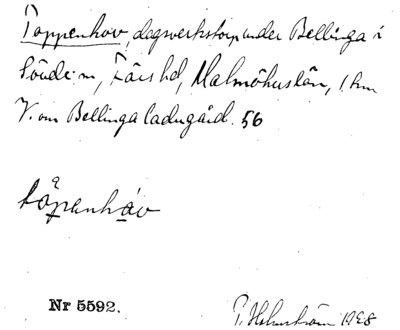 Toppenhov, dagsverkstorp under Bellinga i
Sövde sn, Färs hd, Malmöhus län, 1 km
V. om Bellinga ladugård. 56
tåpenháv
Nr 5592.
P. Holmström 1928